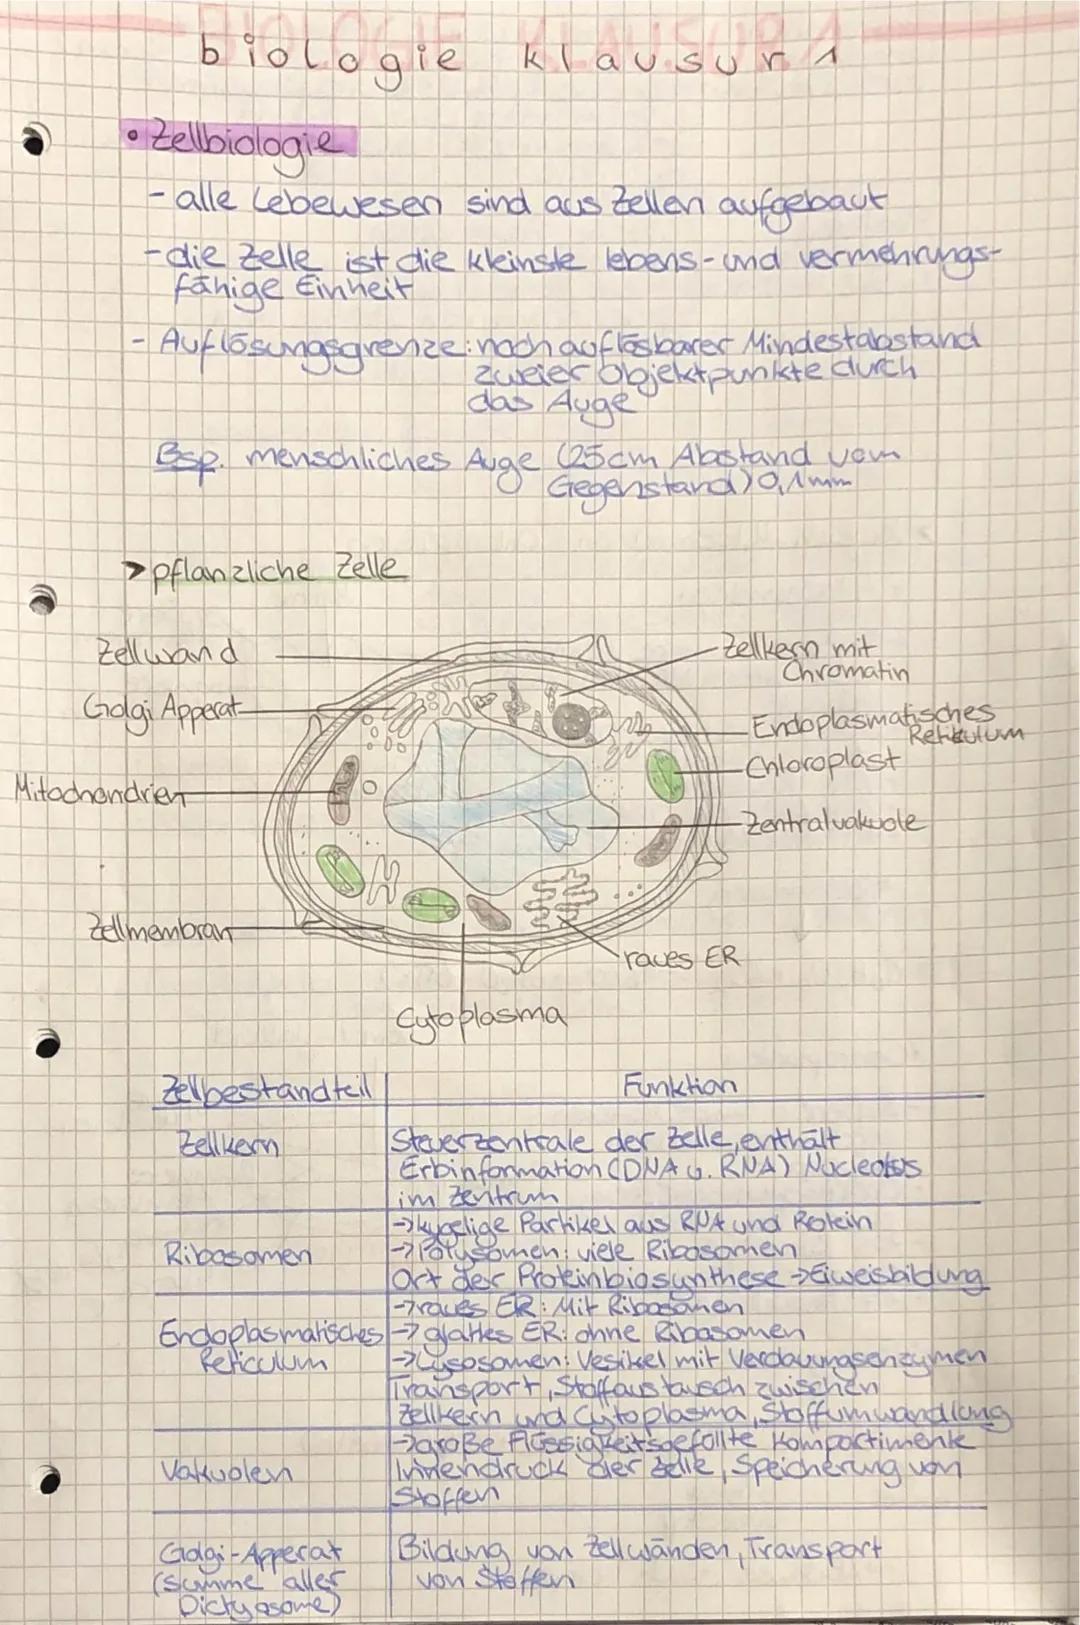 biologie klausur 1
• Zellbiologie
- alle Lebewesen sind aus Zellen aufgebaut
- die Zelle ist die kleinste lebens- und vermehrungs-
fähige Einheit
- Auflösungsgrenze: noch auflösbarer Mindestabstand
zweier Objektpunkte durch
das Auge
Bsp. menschliches Auge (25cm Abstand vom
Gegenstand) 0,1mm
> pflanzliche Zelle
Zellwand
Zellkern mit
Chromatin
Golgi Apperat
Endoplasmatisches
Retikulum
Chloroplast
Mitochondrien
Zentralvakuole
Zellmembran
raues ER
Cytoplasma
Zellbestandteil Funktion
Zellkern
Steuerzentrale der Zelle, enthält
Erbinformation (DNA u. RNA) Nucleolus
im Zentrum
Ribosomen
→ kugelige Partikel aus RNA und Protein
→ Polysomen: viele Ribosomen
Ort der Proteinbiosynthese → Eiweisbildung
Endoplasmatisches
Reticulum
→ raues ER: Mit Ribosomen
→ glattes ER: ohne Ribosomen
→ Lysosomen: Vesikel mit Verdauungsenzymen
Transport, Stoffaustausch zwischen
Zellkern und Cytoplasma, Stoffumwandlung
Vakuolen
→ große Flüssigkeitsgefüllte Kompartimente
Innendruck der Zelle, Speicherung von
Stoffen
Golgi-Apperat
(Summe aller
Dictyosome)
Bildung von Zellwänden, Transport
von Stoffen